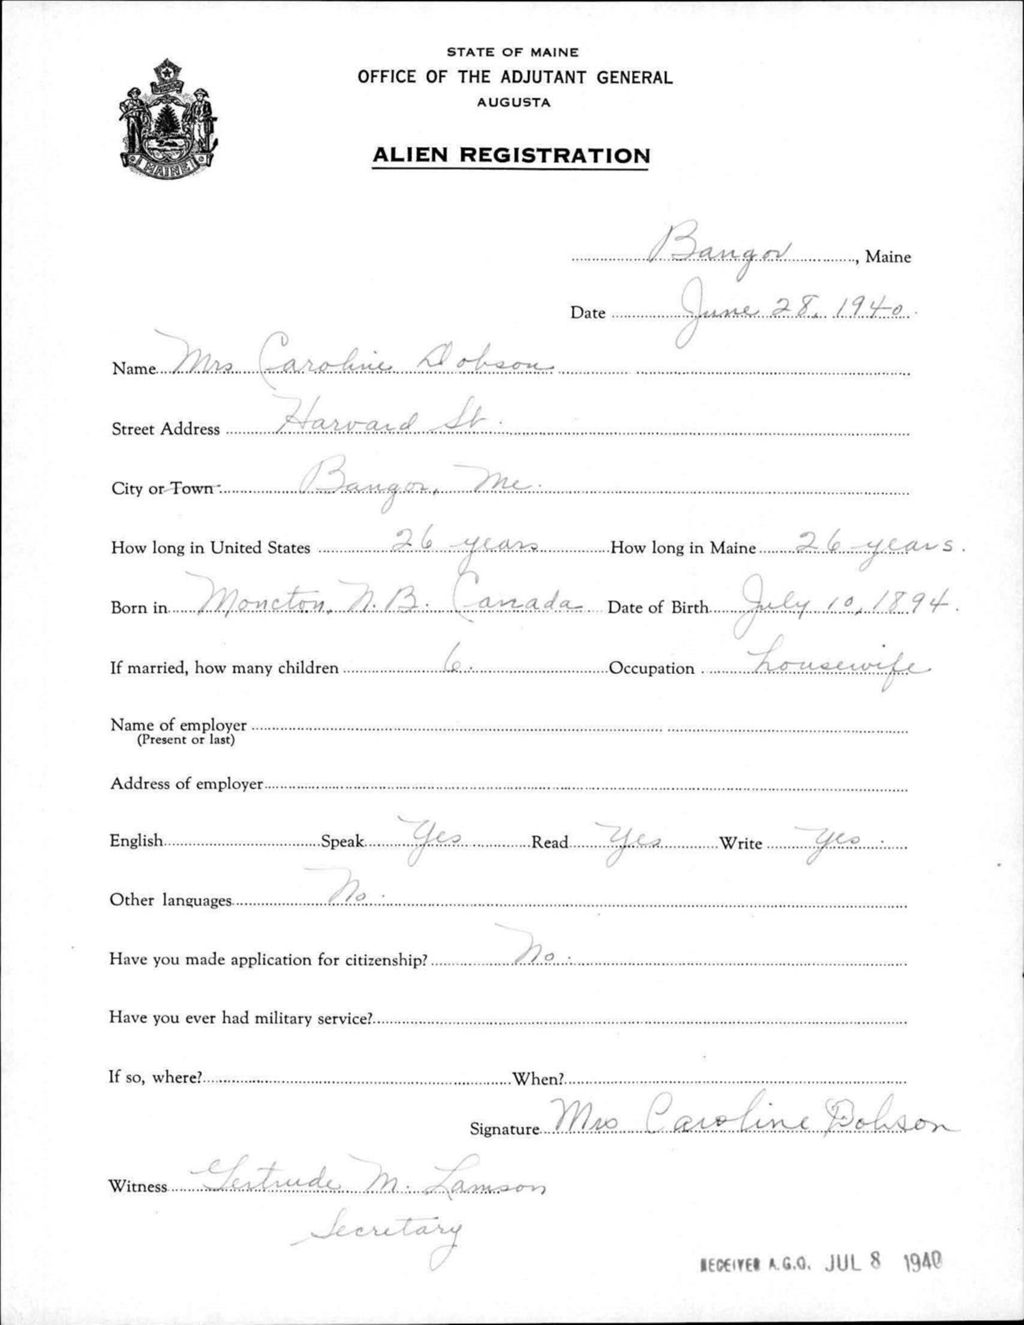 STATE OF MAINE
OFFICE OF THE ADJUTANT GENERAL
AUGUSTA
ALIEN REGISTRATION
MAINE
Bangor, Maine
Date June 28, 1940
Name Mrs Caroline Dobson
Street Address Harvard St.
City or Town Bangor, Me.
How long in United States 26 years How long in Maine 26 years.
Born in Moncton, N.B. Canada Date of Birth July 10, 1894.
If married, how many children 6. Occupation housewife
Name of employer
(Present or last)
Address of employer
English Speak Yes Read Yes Write Yes.
Other languages No.
Have you made application for citizenship? No.
Have you ever had military service?
If so, where? When?
Signature Mrs Caroline Dobson
Witness Gertrude M. Lamson
Secretary
RECEIVED A.G.O. JUL 8 1940